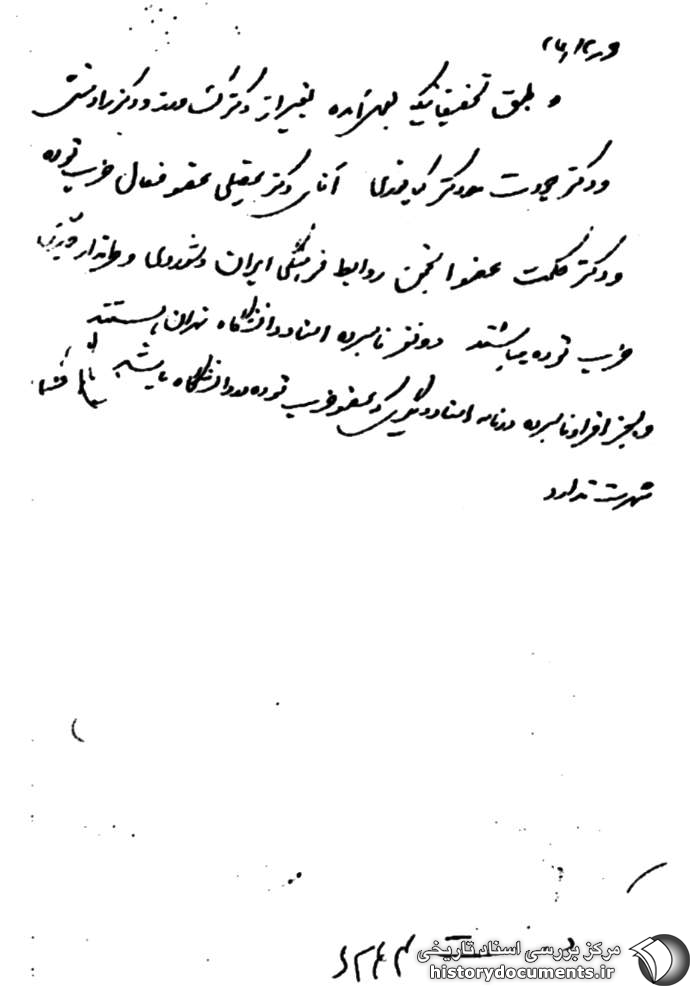 طبق تحقیقاتیکه بعمل آمده بغیر از دکتر کشاورز و دکتر رادمنش
و دکتر جودت و دکتر کیانوری آقای دکتر عقیلی عضو فعال حزب توده
و دکتر حکمت عضو انجمن روابط فرهنگی ایران و شوروی و طرفدار
حزب توده میباشند دو نفر نامبرده استاد دانشگاه تهران هستند
و بجز افراد نامبرده در نامه استاد دیگری که عضو حزب توده در دانشگاه باشد
شهرت ندارد
مرکز بررسی اسناد تاریخی
historydocuments.ir